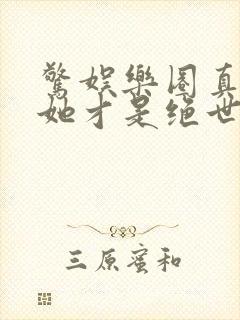 驚娛樂圈真
她才是絕世
三原蜜和